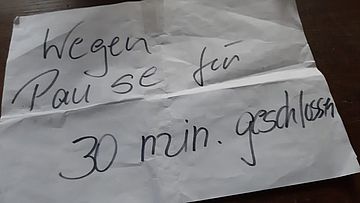 Wegen
Pause für
30 min. geschlossen